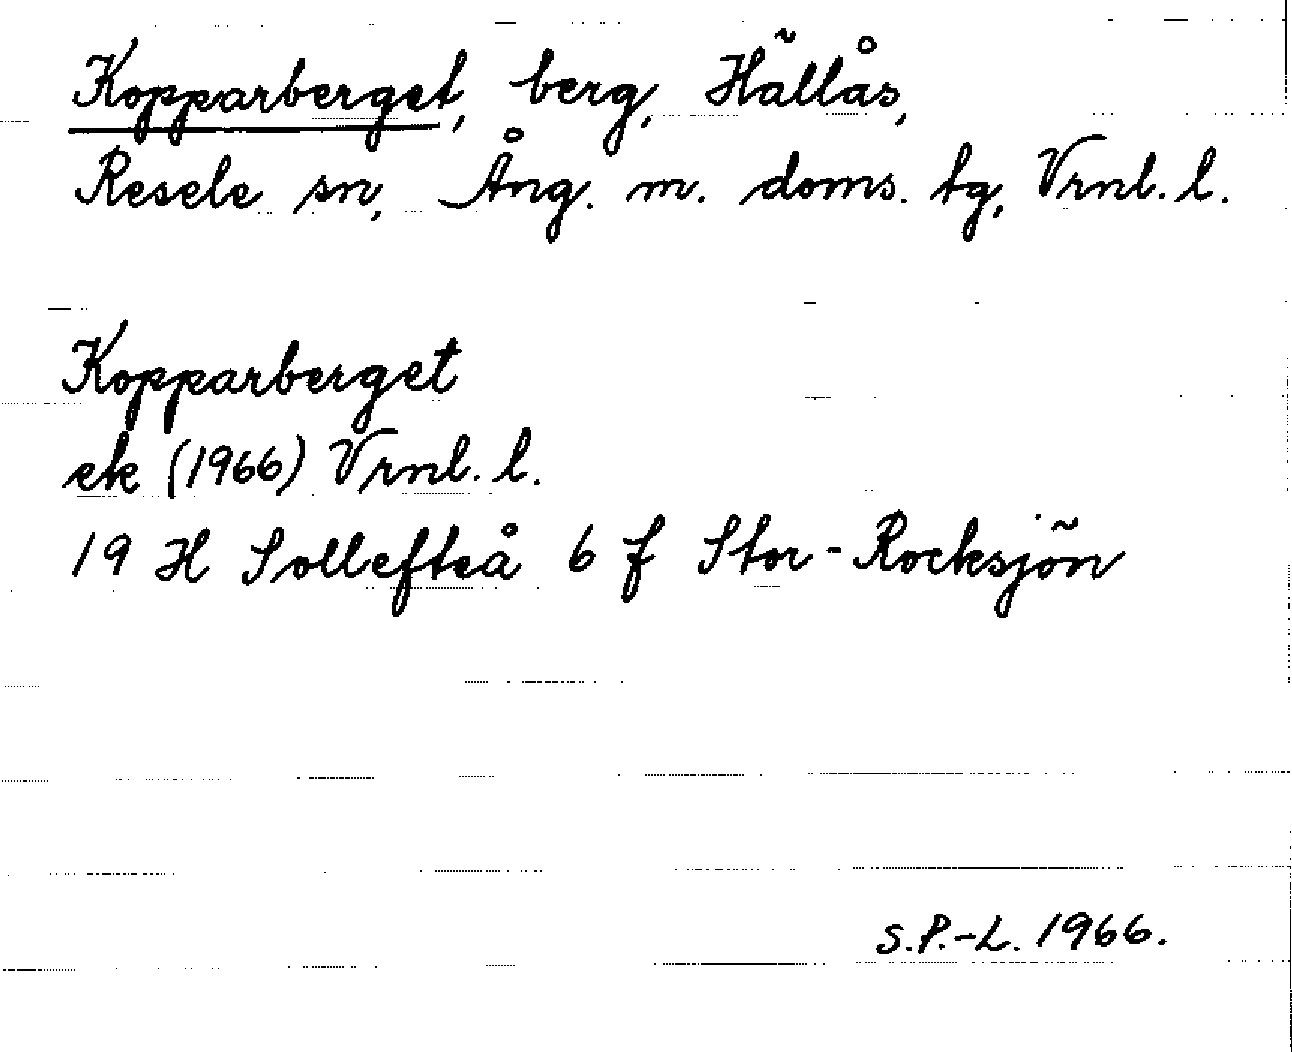 Kopparberget, berg, Hällås,
Resele sn, Ång. m. doms. tg, Vrnl. l.
Kopparberget
ek (1966) Vrnl. l.
19 H Sollefteå 6 f Stor-Rocksjön
S.P.-L. 1966.